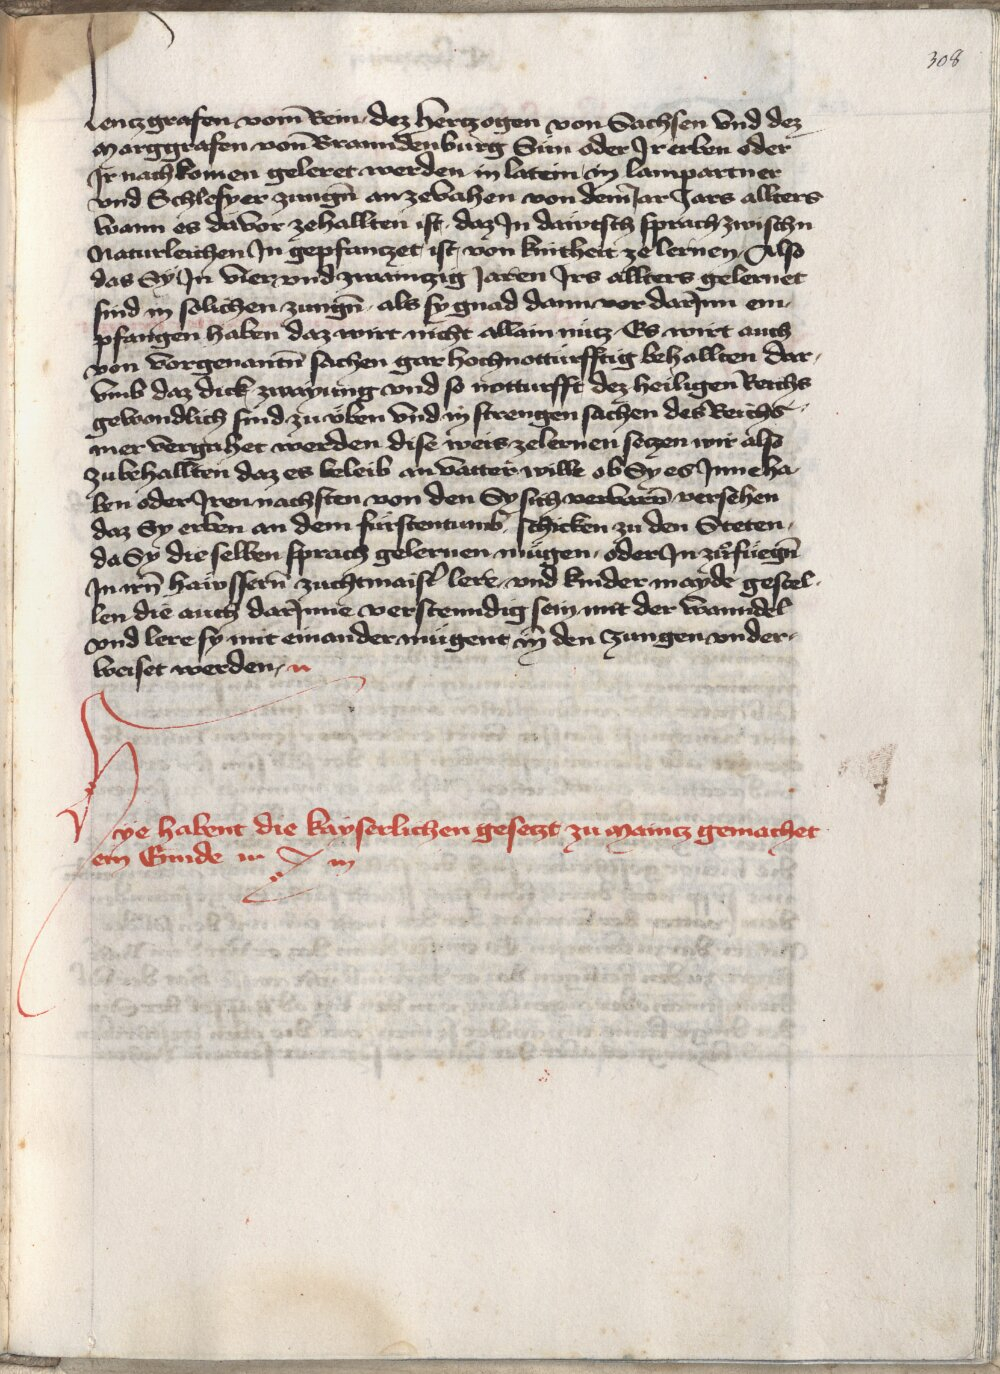 308
lentzgrafen vom Rein, dez hertzogen von Sachsen vnd dez
Marggrafen von Branndenburg Sün oder Ir erben oder
Ir nachkomen geleret werden in latein in lampartner
vnd Schlesyer zungn anzevahen von dem iar Jars allters
wann es davor zehallten ist, daz In dawtsch sprach zwischn
Naturleichen In gepfanczet ist, von kintheit ze lernen, Also
das Sy In vier vnd zwainzig Jaren Irs allters gelernet
sind in solichen zungn, als sy gnad dann vor darInn em-
pfangen haben daz wirt nicht allain nütz, Es wirt auch
von vorgenantn sachen gar hochnotturfftig behallten dar,
vmb daz dick zwayung vnd so notturfft dez heiligen Reichs
gewondlich sind zu üben vnd in strengen sachen des Reichs
mer vergahet werden dise weis zelernen setzen wir also
zubehallten daz es beleib an vatter wille ob Sy es Inne ha-
ben oder Iren nachsten von den Sy sich versehen
daz Sy erben an dem fürstentumb, schicken zu den Steten,
da Sy die selben sprach gelernen mügen, oder In zufüegn
In irn hawssern zuchtmaist lere, vnd kinder mayde gestel-
len die auch darInne verstenndig sein mit der wanndel
vnd lere sy mit einander mügent in den zungen vnder-
weiset werden,
Hye habent die kayserlichen gesetzt zu Maintz gemachet
ein Ennde